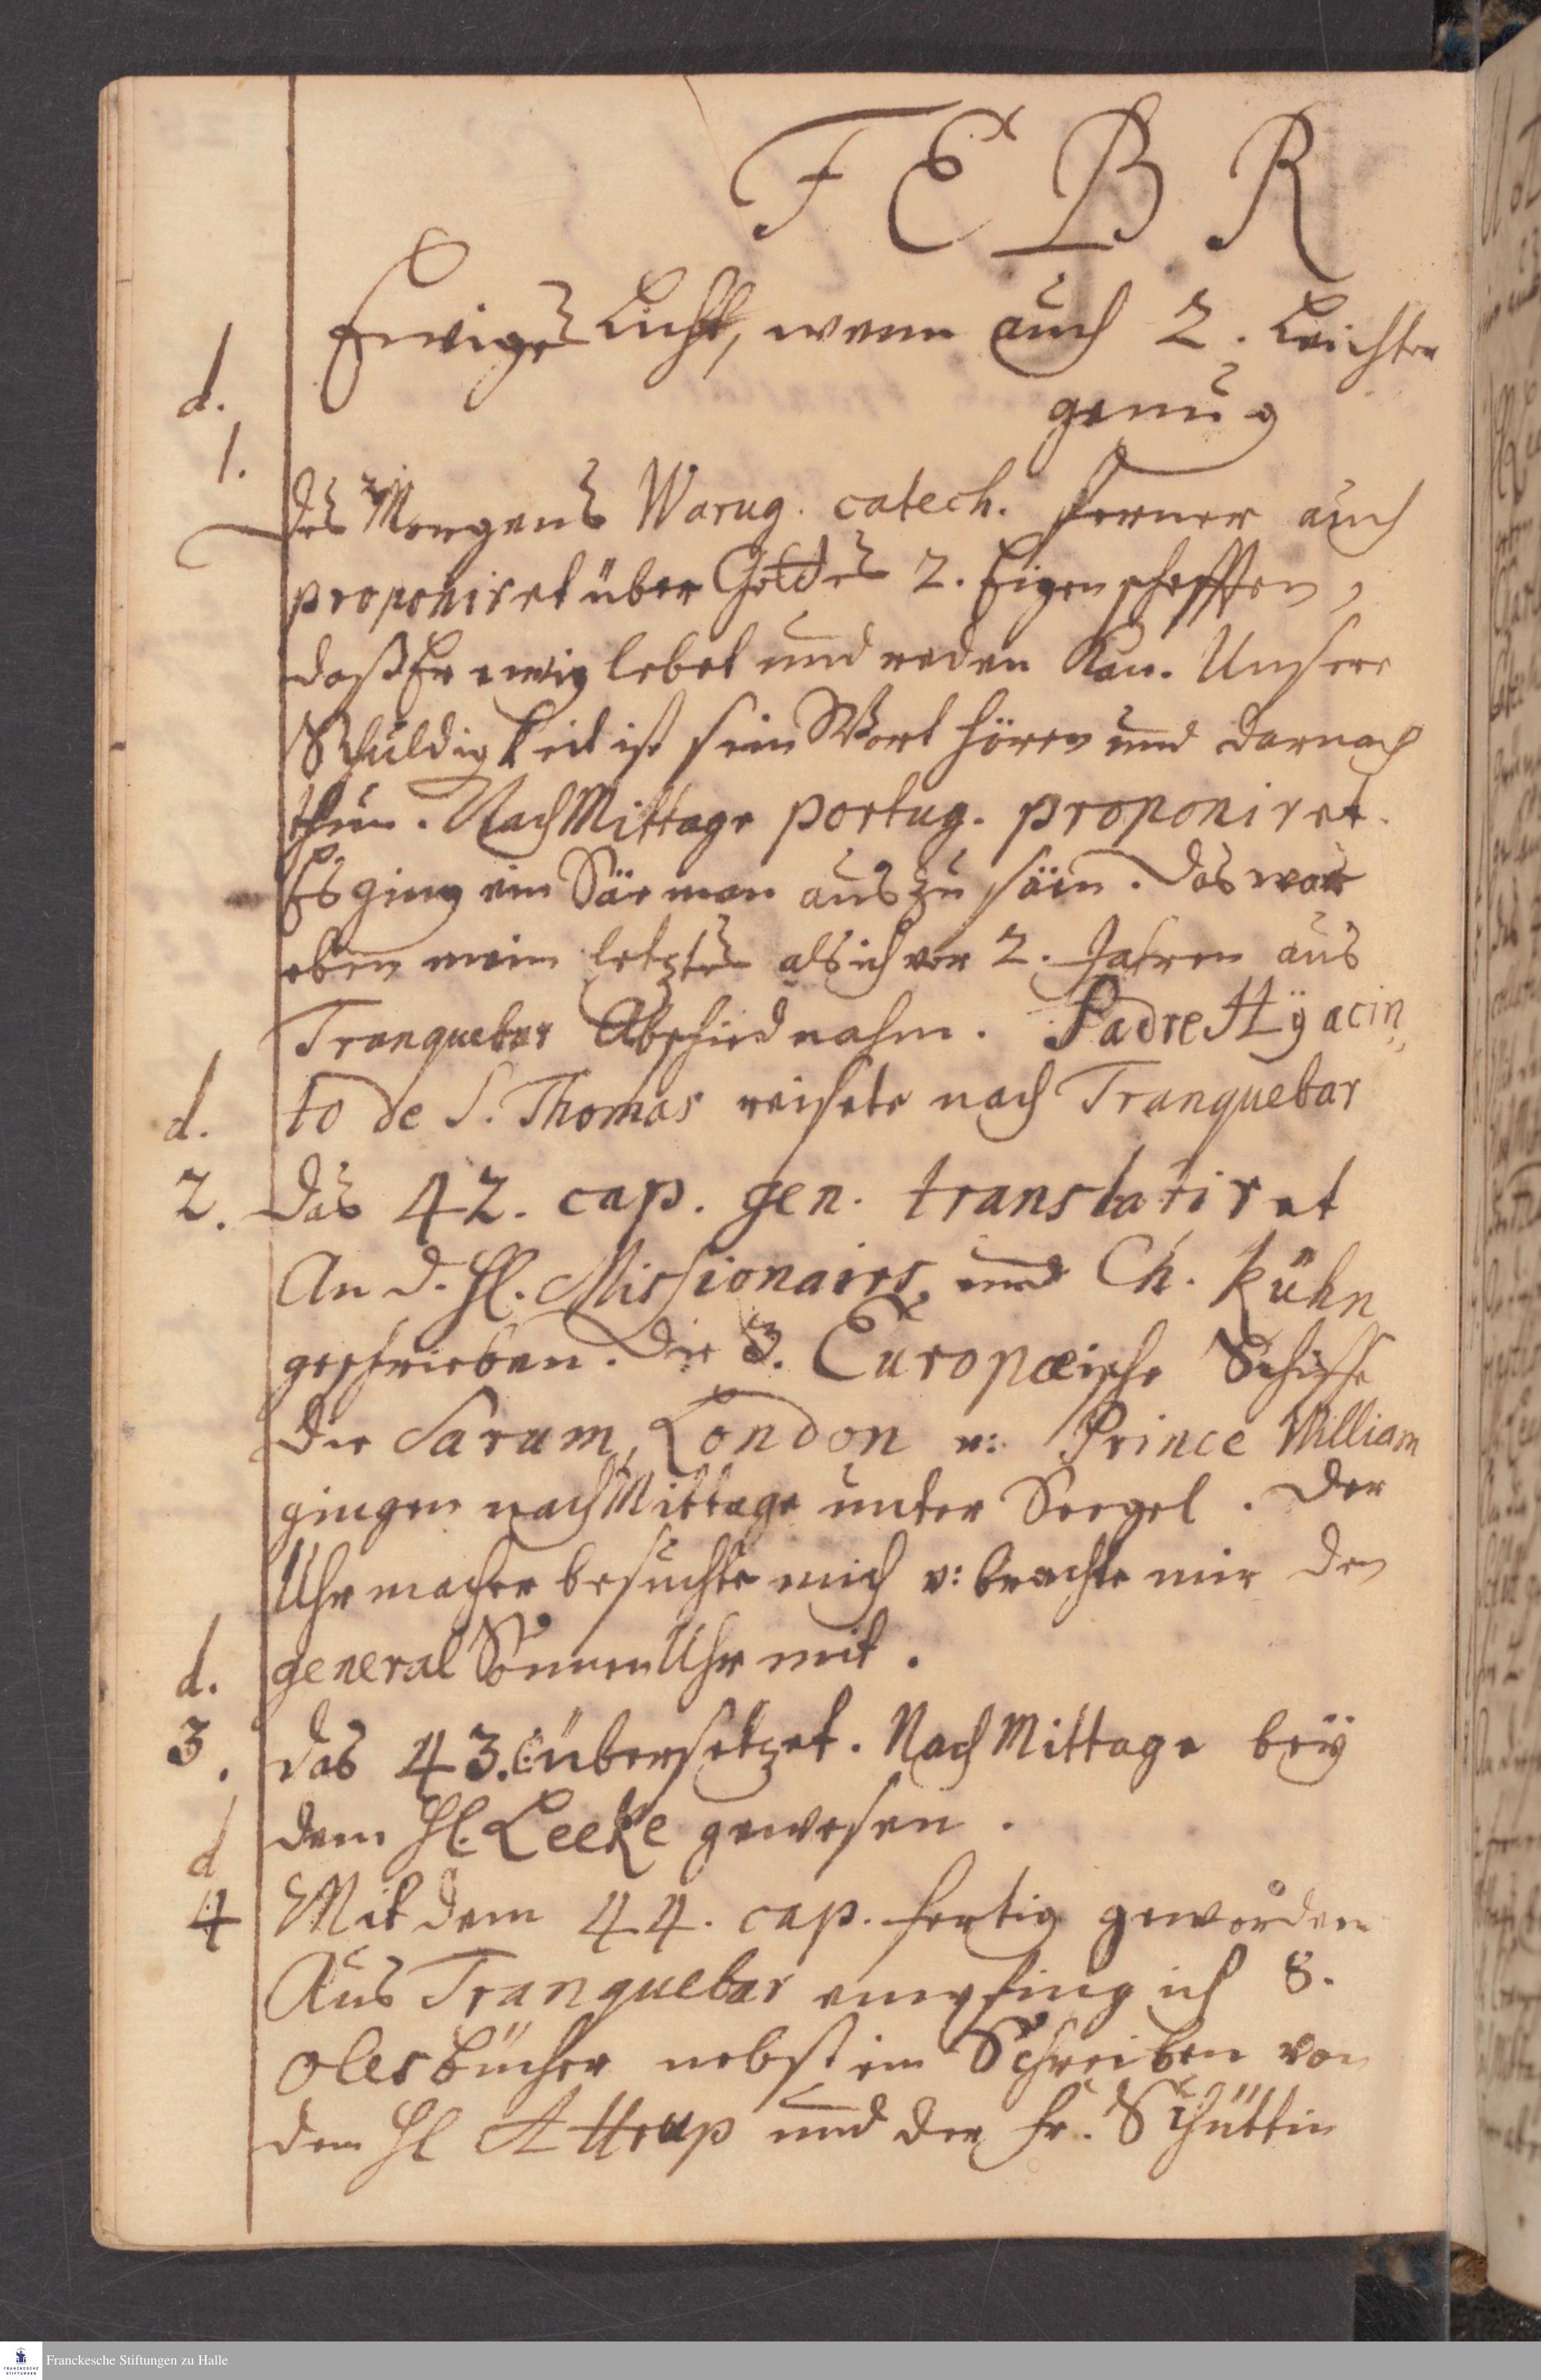 FEBR
Ewiges Licht, wenn auch 2. Leichter
genug
d.
1.
des Morgens Warug. catech. ferner auch
proponiret über Gottes 2. Eigenschafften,
daß Er ewig lebet und reden Kan. Unsere
Schuldigkeit ist sein Wort hören und darnach
thun. NachMittage portug. proponiret.
Es ging ein Säeman aus zu säen. Das war
eben mein letztes als ich vor 2. Jahren aus
Tranquebar Abschied nahm. Padre Hÿacin„
to de S. Thomas reisete nach Tranquebar
d.
2.
Das 42. cap. gen. transtatiret
An d. Hl. Missionairs, und Ch. Kühn
geschrieben. Die 3. Europæische Schiffe
die Sarum, London u: Prince William
gingen nachMittage unter Seegel. Der
Uhrmacher besuchte mich u: brachte mir den
general SonnenUhr mit.
d.
3.
Das 43. C. übersetzet. NachMittage beÿ
dem Hl. Leeke gewesen.
d
4
Mit dem 44. cap. fertig geworden
Aus Tranquebar empfing ich 8.
olesbücher nebst ein Schreiben von
dem Hl Attrup und der Fr. Schüttin